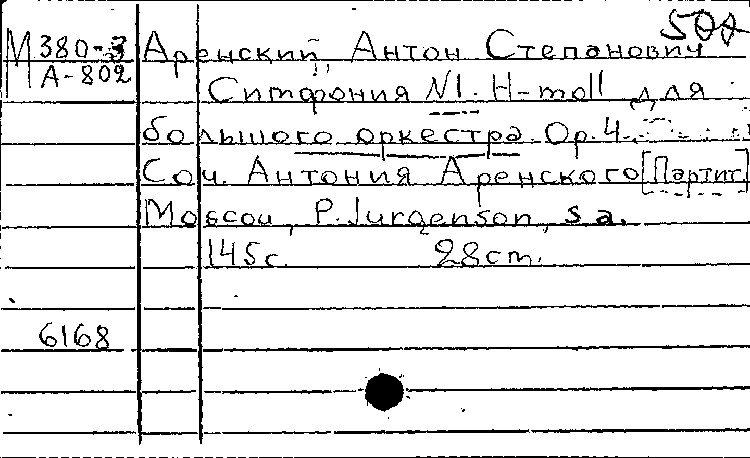 М 380-3 Аренский, Антон Степанович
А-802
Симфония N1. H-moll для
большого оркестра Op. 4.
Соч. Антония Аренского [Партит.]
Moscou, P. Jurgenson, s.a.
145 с. 28 cm.
6168